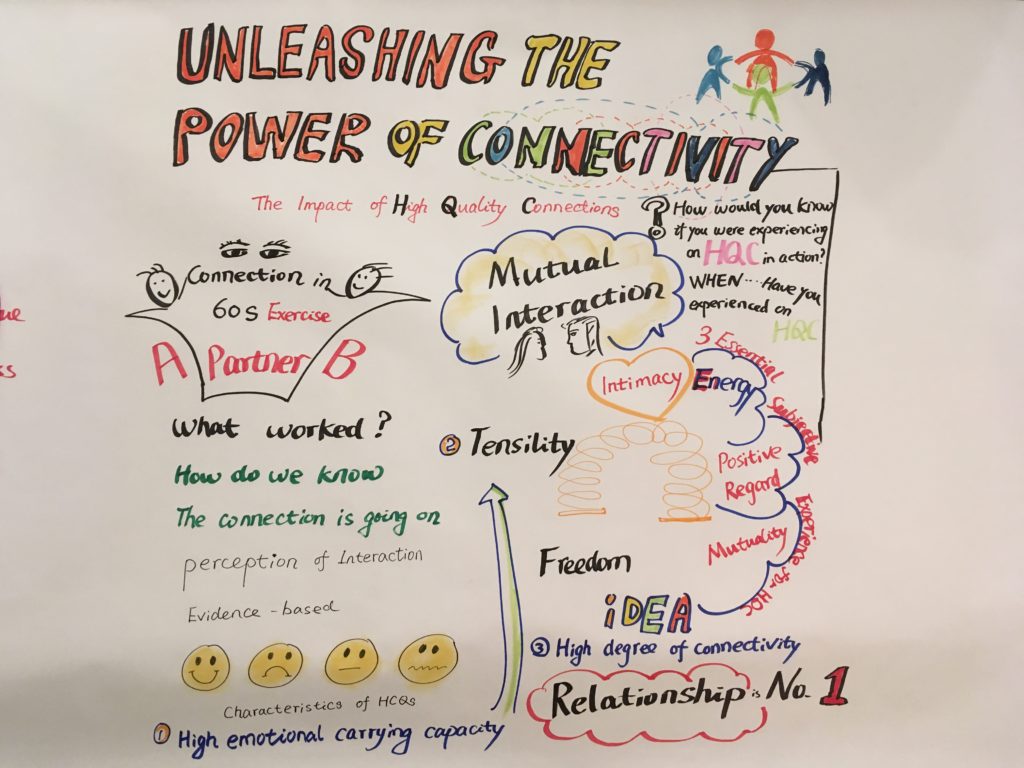 UNLEASHING THE
POWER OF CONNECTIVITY
The Impact of High Quality Connections
? How would you know
if you were experiencing
on HQC in action?
WHEN... Have you
experienced on
HQC
Connection in
60s Exercise
A Partner B
What worked?
How do we know
The connection is going on
perception of Interaction
Evidence-based
Characteristics of HCQs
① High emotional carrying capacity
Mutual
Interaction
② Tensility
Intimacy
3 Essential Subjective Experience for HQC
Energy
Positive
Regard
Mutuality
Freedom
iDEA
③ High degree of connectivity
Relationship is No. 1